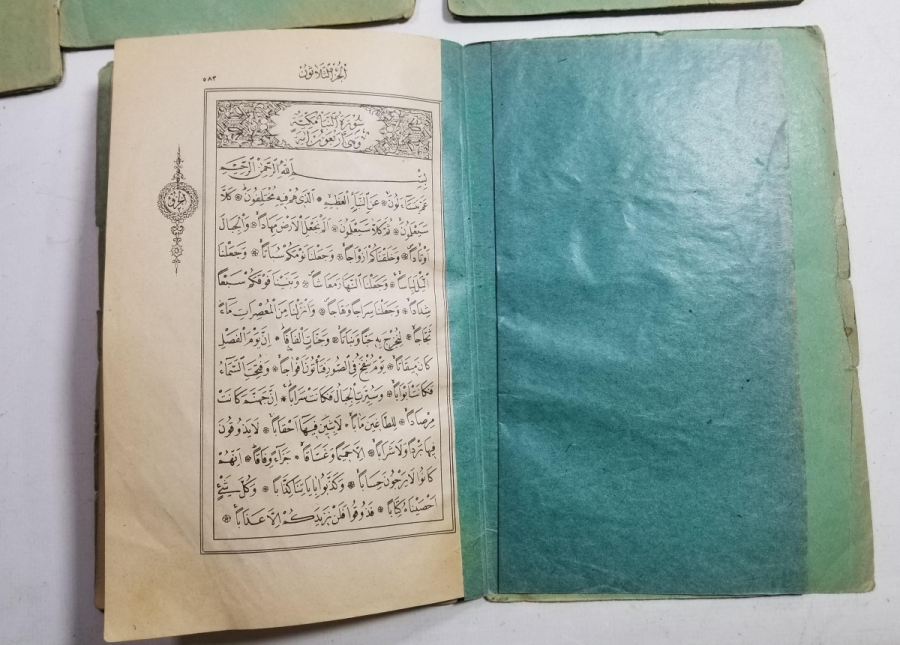 الجزء الثلاثون
٥٨٣
سُورَةُ النَّبَإِ مَكِّيَّةٌ
وَهِيَ اَرْبَعُونَ اٰيَةً
بِسْمِ اللّٰهِ الرَّحْمٰنِ الرَّحِيمِ
عَمَّ يَتَسَاءَلُونَۙ ۞ عَنِ النَّبَأِ الْعَظِيمِۙ ۞ اَلَّذِى هُمْ فِيهِ مُخْتَلِفُونَۜ ۞ كَلَّا
سَيَعْلَمُونَۙ ۞ ثُمَّ كَلَّا سَيَعْلَمُونَ ۞ اَلَمْ نَجْعَلِ الْاَرْضَ مِهَادًاۙ ۞ وَالْجِبَالَ
اَوْتَادًاۙ ۞ وَخَلَقْنَاكُمْ اَزْوَاجًاۙ ۞ وَجَعَلْنَا نَوْمَكُمْ سُبَاتًاۙ ۞ وَجَعَلْنَا
الَّيْلَ لِبَاسًاۙ ۞ وَجَعَلْنَا النَّهَارَ مَعَاشًاۙ ۞ وَبَنَيْنَا فَوْقَكُمْ سَبْعًا
شِدَادًاۙ ۞ وَجَعَلْنَا سِرَاجًا وَهَّاجًاۙ ۞ وَاَنْزَلْنَا مِنَ الْمُعْصِرَاتِ مَاءً
ثَجَّاجًاۙ ۞ لِنُخْرِجَ بِهِ حَبًّا وَنَبَاتًاۙ ۞ وَجَنَّاتٍ اَلْفَافًاۜ ۞ اِنَّ يَوْمَ الْفَصْلِ
كَانَ مِيقَاتًاۙ ۞ يَوْمَ يُنْفَخُ فِى الصُّورِ فَتَأْتُونَ اَفْوَاجًاۙ ۞ وَفُتِحَتِ السَّمَاءُ
فَكَانَتْ اَبْوَابًاۙ ۞ وَسُيِّرَتِ الْجِبَالُ فَكَانَتْ سَرَابًاۜ ۞ اِنَّ جَهَنَّمَ كَانَتْ
مِرْصَادًاۙ ۞ لِلطَّاغِينَ مَاٰبًاۙ ۞ لَابِثِينَ فِيهَا اَحْقَابًاۚ ۞ لَا يَذُوقُونَ
فِيهَا بَرْدًا وَلَا شَرَابًاۙ ۞ اِلَّا حَمِيمًا وَغَسَّاقًاۙ ۞ جَزَاءً وِفَاقًاۜ ۞ اِنَّهُمْ
كَانُوا لَا يَرْجُونَ حِسَابًاۙ ۞ وَكَذَّبُوا بِاٰيَاتِنَا كِذَّابًاۜ ۞ وَكُلَّ شَىْءٍ
اَحْصَيْنَاهُ كِتَابًاۙ ۞ فَذُوقُوا فَلَنْ نَزِيدَكُمْ اِلَّا عَذَابًا ۞